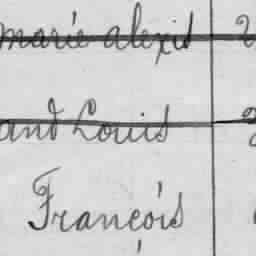 marie alexis
and Louis
François